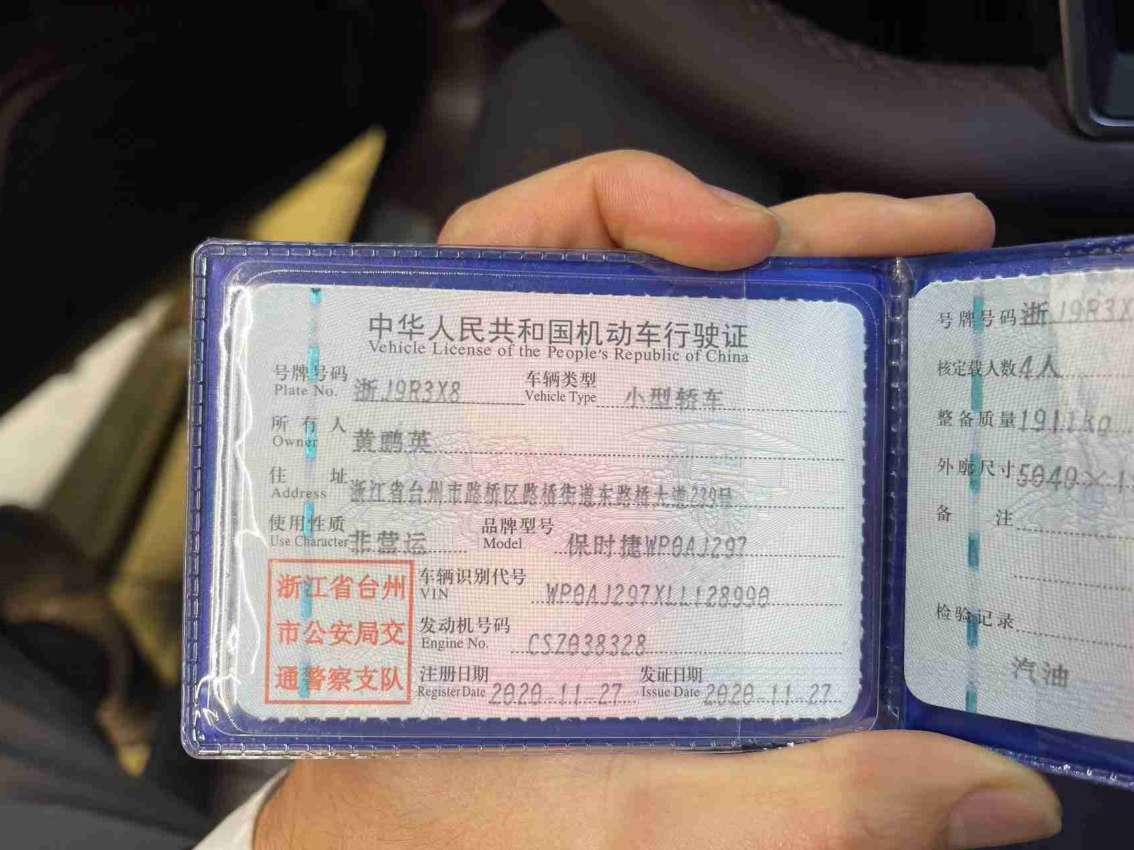 中华人民共和国机动车行驶证
Vehicle License of the People's Republic of China
号牌号码 浙J9R3X8 车辆类型 小型轿车
Plate No. Vehicle Type
所有人 黄鹏英
Owner
住址 浙江省台州市路桥区路桥街道东路桥大道239号
Address
使用性质 非营运 品牌型号 保时捷WP0AJ297
Use Character Model
浙江省台州
市公安局交
通警察支队
车辆识别代号 WP0AJ297XLL128990
VIN
发动机号码 CSZ038328
Engine No.
注册日期 2020-11-27 发证日期 2020-11-27
Register Date Issue Date
号牌号码 浙J9R3X
核定载人数 4人
整备质量 1911kg
外廓尺寸 5049×1
备注
检验记录
汽油